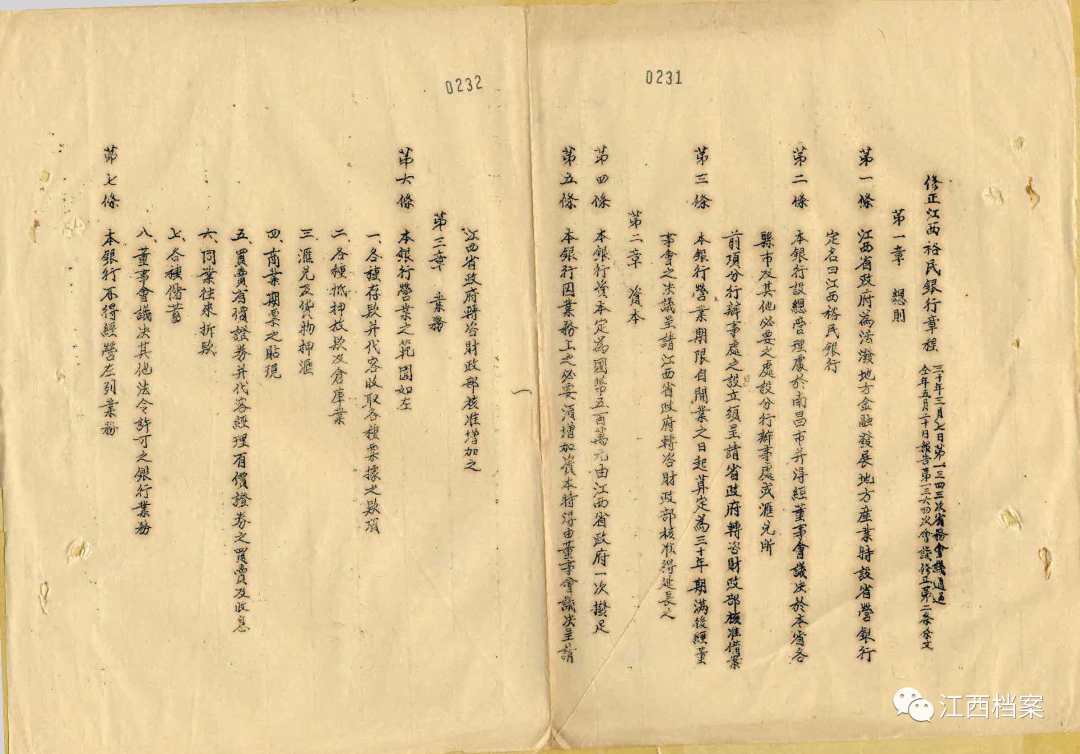 0231
修正江西裕民銀行章程
三十年三月七日第一三四三次省務會議通過
仝年五月二十日報告第一三六四次會議修正第二条条文
第一章 總則
第一條 江西省政府為活潑地方金融發展地方產業特設省營銀行
定名曰江西裕民銀行
第二條 本銀行設總管理處於南昌市并得經董事會議决於本省各
縣市及其他必要之處設分行辦事處或滙兑所
前項分行辦事處之設立須呈請省政府轉咨財政部核准備案
第三條 本銀行營業期限自開業之日起算定為三十年期滿後經董
事會之决議呈請江西省政府轉咨財政部核准得延長之
第二章 資本
第四條 本銀行資本定為國幣五百萬元由江西省政府一次撥足
第五條 本銀行因業務上之必要須增加資本時得由董事會議决呈請
一
0232
江西省政府轉咨財政部核准增加之
第三章 業務
第六條 本銀行營業之範圍如左
一、各種存欵并代客收取各種票據之欵項
二、各種抵押放欵及倉庫業
三、滙兑及貨物押滙
四、商業期票之貼現
五、買賣有價證券并代客經理有價證券之買賣及收息
六、同業往來折欵
七、各種儲蓄
八、董事會議决其他法令許可之銀行業務
第七條 本銀行不得經營左列業務
江西档案